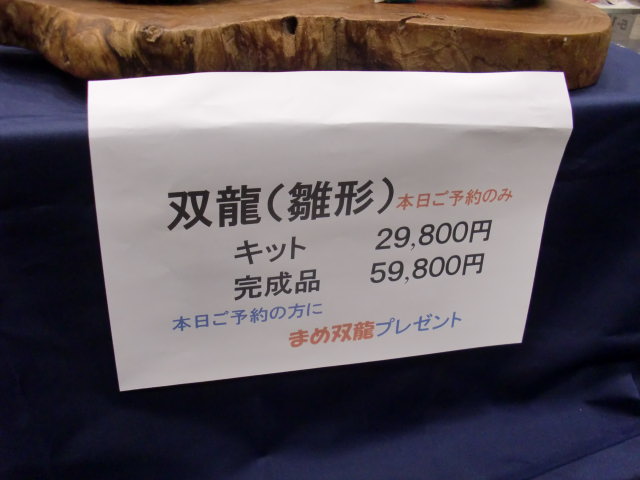 双龍(雛形)本日ご予約のみ
キット 29,800円
完成品 59,800円
本日ご予約の方に
まめ双龍プレゼント